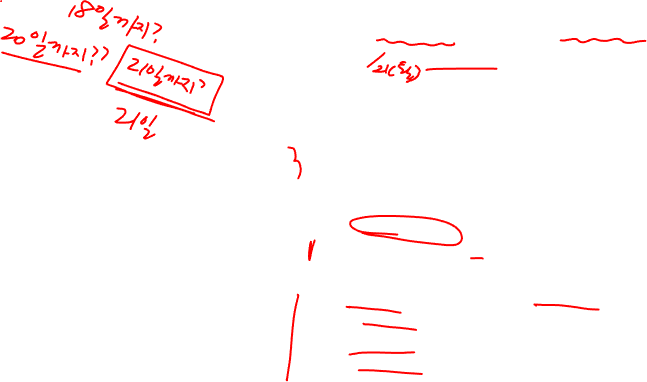 18일까지?
20일까지??
21일까지?
21일
/21(토)